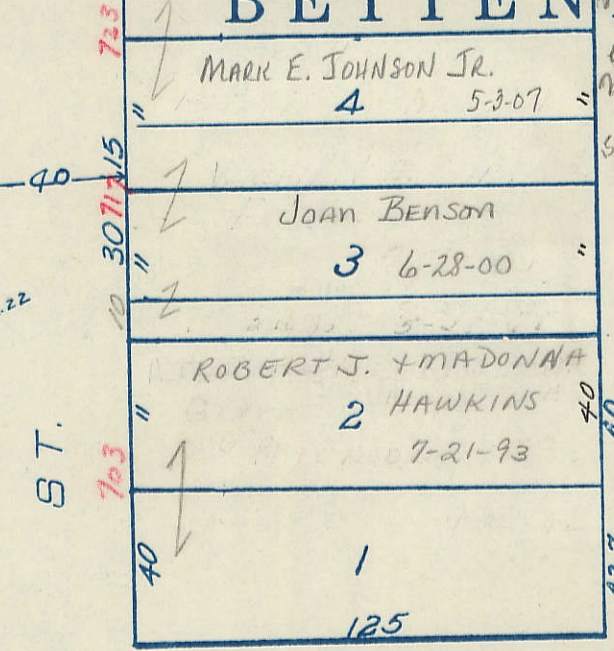 BETTEN
723
MARK E. JOHNSON JR.
4 5-3-07 "
"
15
40
717
JOAN BENSON
30
" 3 6-28-00 "
10
.22
ROBERT J. + MADONNA
" 2 HAWKINS 40
7-21-93
703
ST.
40 1
125